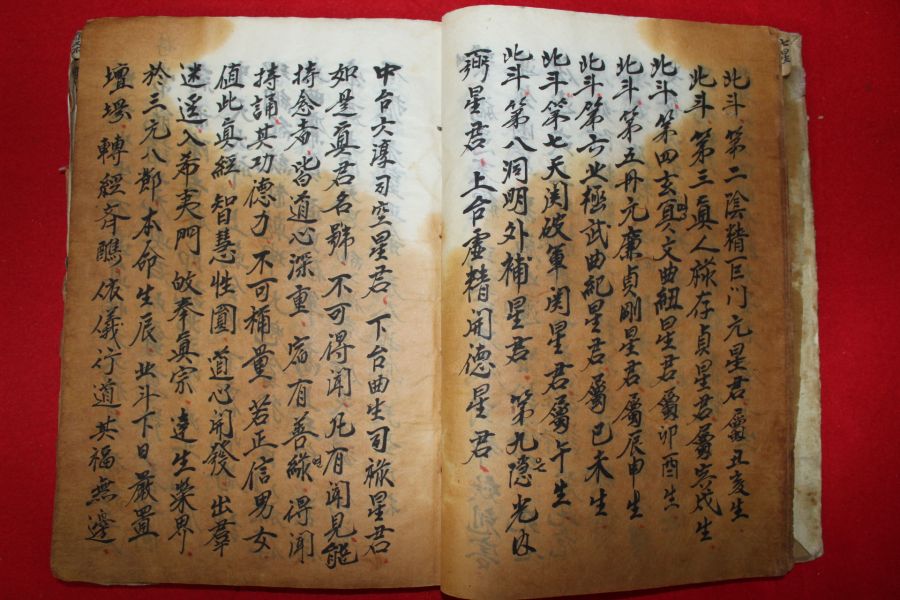 北斗、第二陰精巨门元星君屬丑亥生
北斗、第三眞人祿存貞星君屬寅戌生
北斗、第四玄冥文曲紐星君屬卯酉生
北斗、第五丹元廉貞剛星君屬辰申生
北斗第六北極武曲紀星君屬巳未生
北斗、第七天関破軍関星君屬午生
北斗、第八洞明外補星君 第九隱光内
弼星君、上台虛精開德星君
中台六淳司空星君、下台曲生司祿星君
如是眞君名號 不可得聞、凡有聞見能
持念者、皆道心深重、宿有善緣、得聞
持誦其功德力 不可稱量、若正信男女
值此眞經、智慧性圓、道心開發、出羣
迷逕入希夷門 故奉眞宗、達生榮界、
於三元八節本命生辰、北斗下日嚴置
壇塲、轉經斉醮、依儀行道 其福無邊